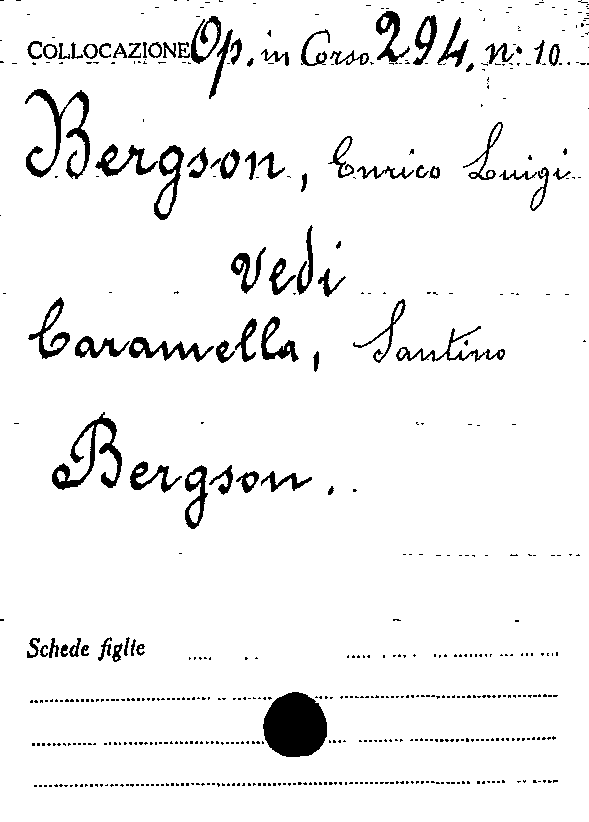 COLLOCAZIONE Op. in Corso 294. n. 10
Bergson, Enrico Luigi
vedi
Caramella, Santino
Bergson.
Schede figlie